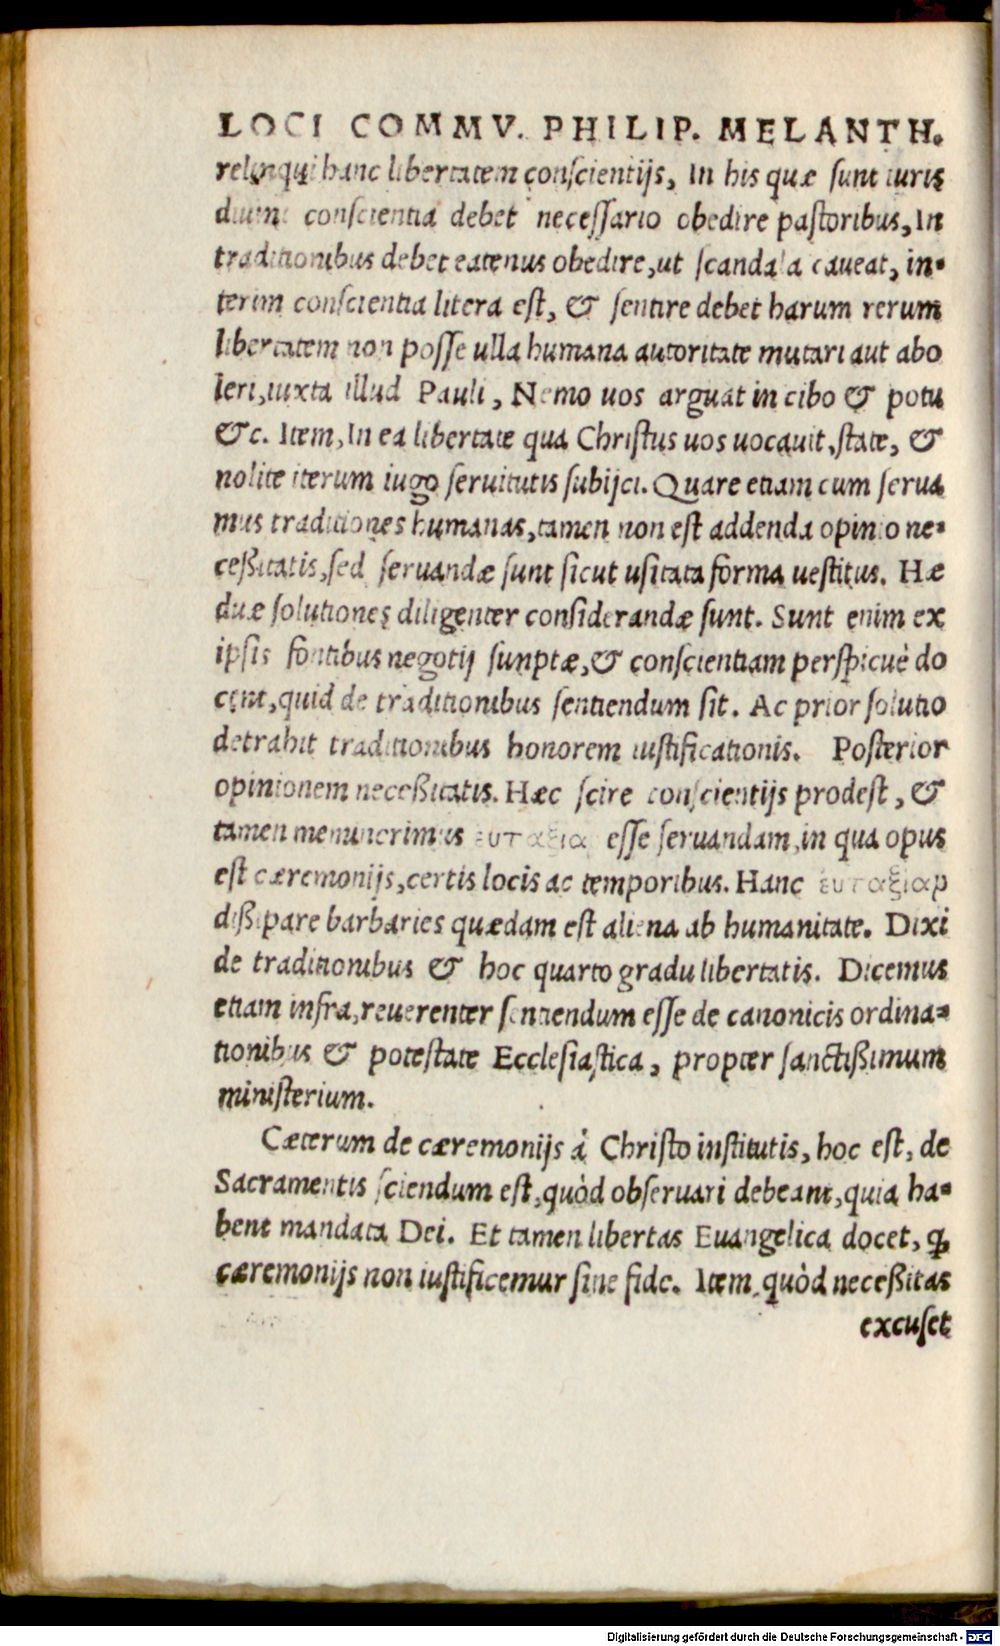 LOCI COMMV. PHILIP. MELANTH.
relinqui hanc libertatem conscientijs, In his quæ sunt iuris
diuini conscientia debet necessario obedire pastoribus, In
traditionibus debet eatenus obedire, ut scandala caueat, in-
terim conscientia libera est, & sentire debet harum rerum
libertatem non posse ulla humana autoritate mutari aut abo
leri, iuxta illud Pauli, Nemo uos arguat in cibo & potu
&c. Item, In ea libertate qua Christus uos uocauit, state, &
nolite iterum iugo seruitutis subijci. Quare etiam cum serua
mus traditiones humanas, tamen non est addenda opinio ne-
ceßitatis, sed seruandæ sunt sicut usitata forma uestitus. Hæ
duæ solutiones diligenter considerandæ sunt. Sunt enim ex
ipsis fontibus negotij sunptæ, & conscientiam perspicuè do
cent, quid de traditionibus sentiendum sit. Ac prior solutio
detrahit traditionibus honorem iustificationis. Posterior
opinionem neceßitatis. Hæc scire conscientijs prodest, &
tamen meminerimus ἐυταξια esse seruandam, in qua opus
est cæremonijs, certis locis ac temporibus. Hanc ἐυταξιαμ
dißipare barbaries quædam est aliena ab humanitate. Dixi
de traditionibus & hoc quarto gradu libertatis. Dicemus
etiam infra, reuerenter sentiendum esse de canonicis ordina-
tionibus & potestate Ecclesiastica, propter sanctißimum
ministerium.
Cæterum de cæremonijs à Christo institutis, hoc est, de
Sacramentis sciendum est, quòd obseruari debeant, quia ha-
bent mandata Dei. Et tamen libertas Euangelica docet, ꝙ
cæremonijs non iustificemur sine fide. Item, quòd neceßitas
excuset
Digitalisierung gefördert durch die Deutsche Forschungsgemeinschaft - DFG